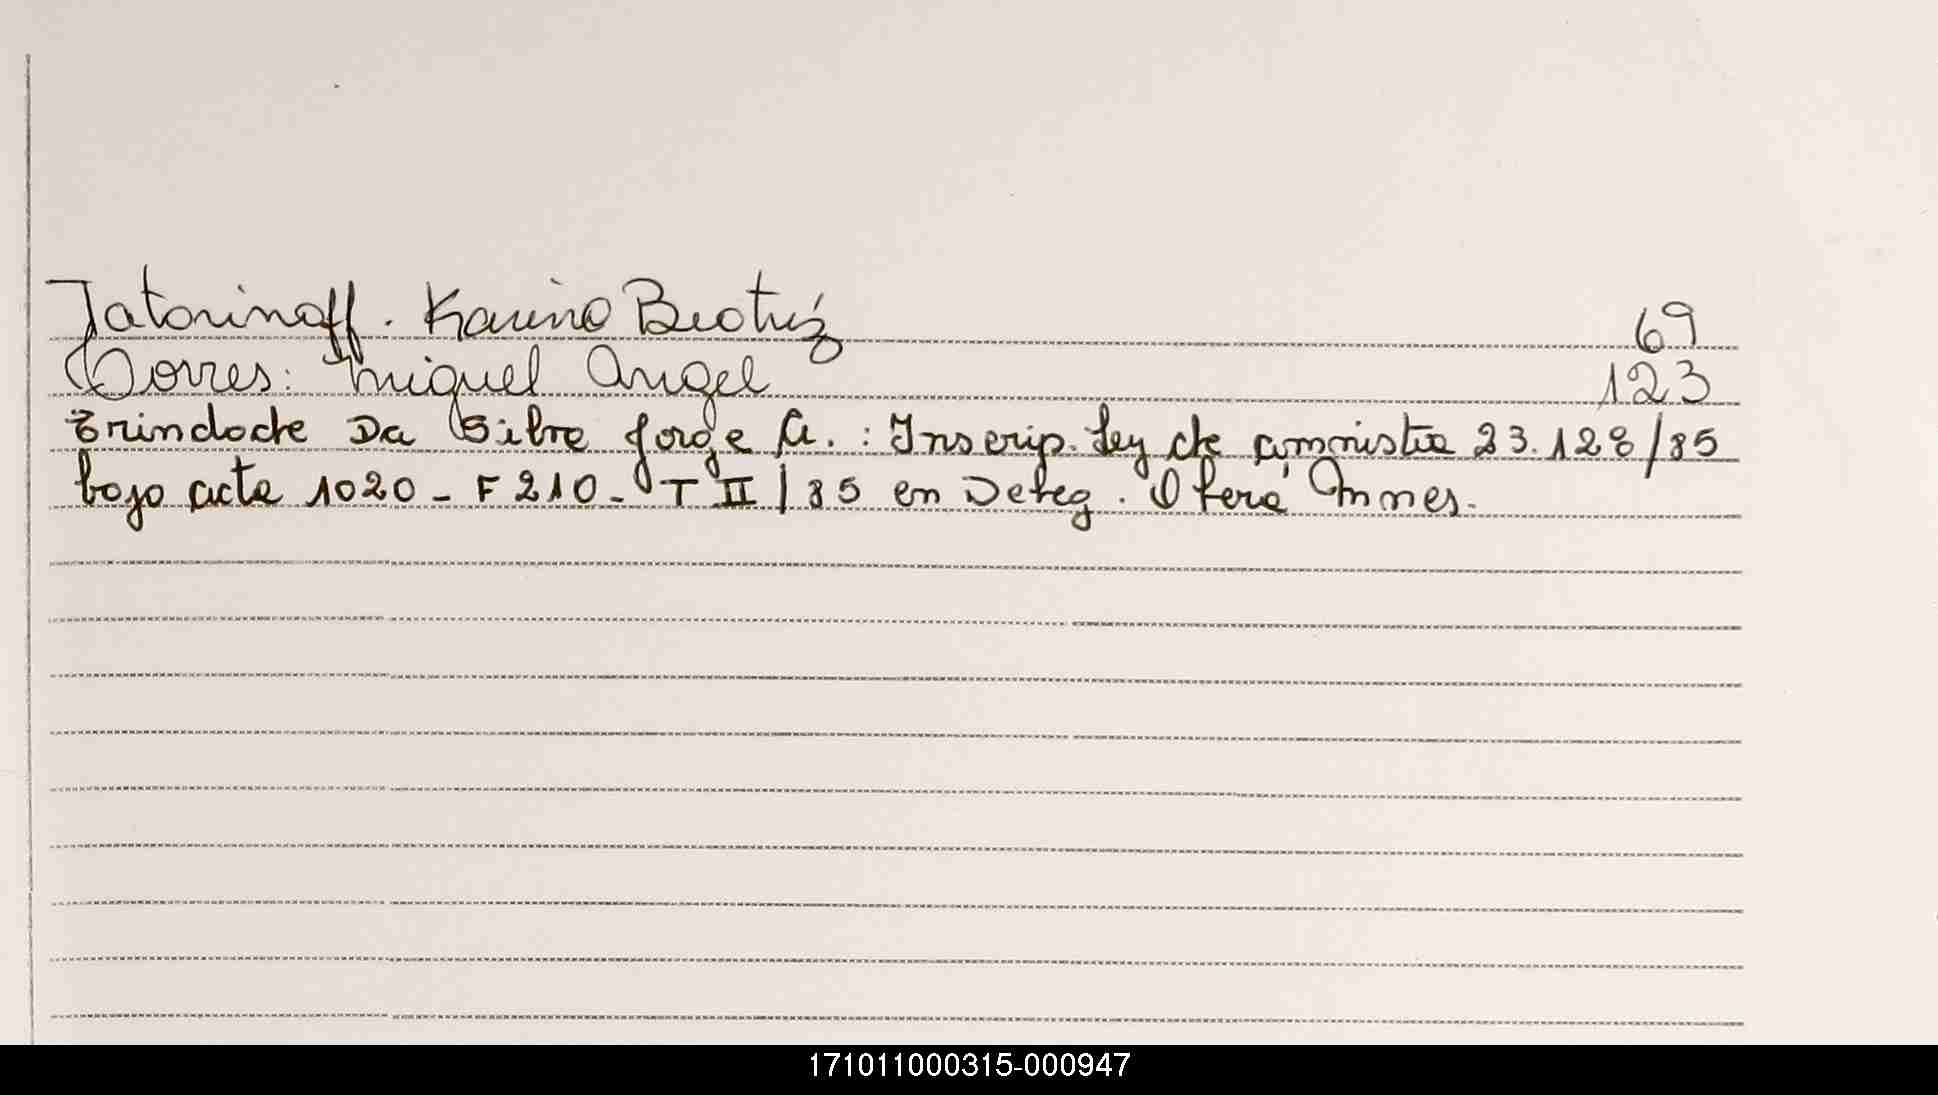 Tatarinoff. Karina Beatriz 69
Torres: Miguel Angel 123
Trindade Da Silva Jorge A. : Inscrip. Ley de amnistia 23.128/85
bajo acta 1020 - F 210 - T II/85 en Deleg. Oberá Mnes.
171011000315-000947